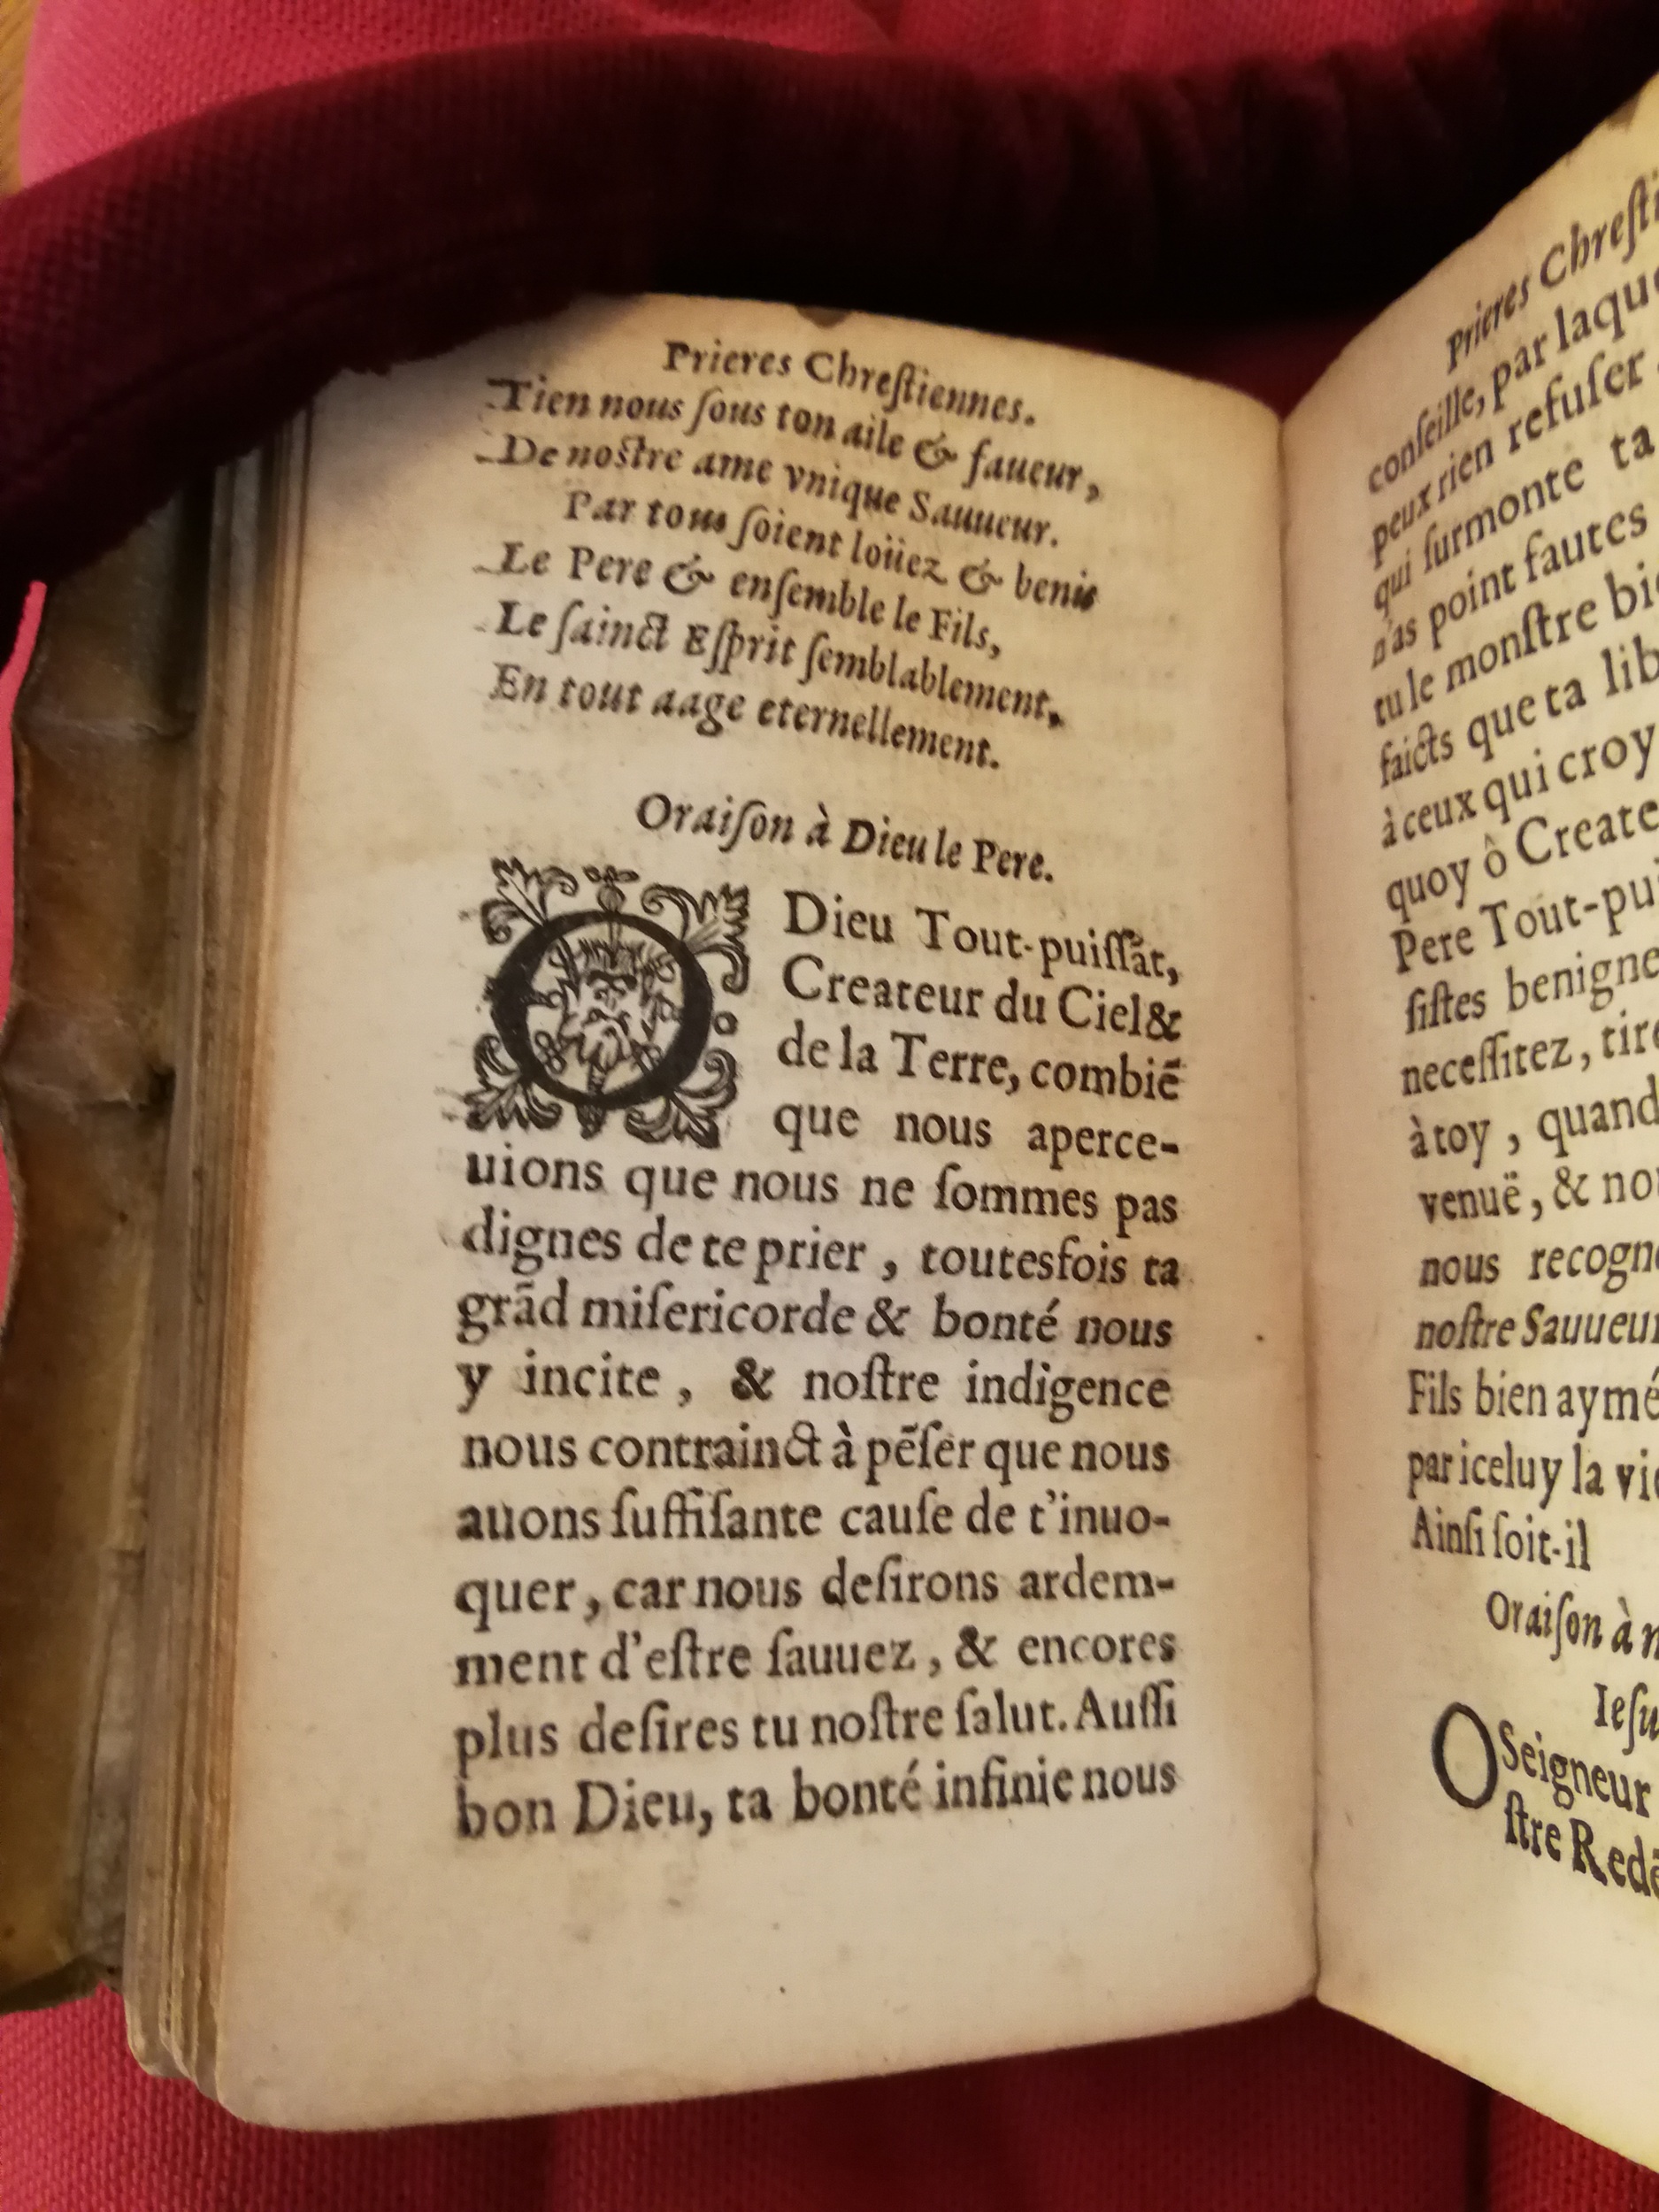 Prieres Chreſtiennes.
Tien nous ſous ton aile & faueur,
De noſtre ame vnique Sauueur.
Par tous ſoient loüez & benis
Le Pere & enſemble le Fils,
Le ſainct Eſprit ſemblablement,
En tout aage eternellement.
Oraiſon à Dieu le Pere.
O Dieu Tout-puiſſãt,
Createur du Ciel &
de la Terre, combiẽ
que nous aperce-
uions que nous ne ſommes pas
dignes de te prier, toutesfois ta
grãd miſericorde & bonté nous
y incite, & noſtre indigence
nous contrainct à pẽſer que nous
auons ſuffiſante cauſe de t'inuo-
quer, car nous deſirons ardem-
ment d'eſtre ſauuez, & encores
plus deſires tu noſtre ſalut. Auſſi
bon Dieu, ta bonté infinie nous
Prieres Chreſti
conſeille, par laqu
peux rien refuſer
qui ſurmonte ta
n'as point fautes
tu le monſtre bi
faicts que ta lib
à ceux qui croy
quoy ô Create
Pere Tout-pui
ſiſtes benigne
neceſſitez, tire
à toy, quand
venuë, & no
nous recogn
noſtre Sauueur
Fils bien aymé
par iceluy la vie
Ainſi ſoit-il
Oraiſon à n
Ieſu
O Seigneur
ſtre Redẽ